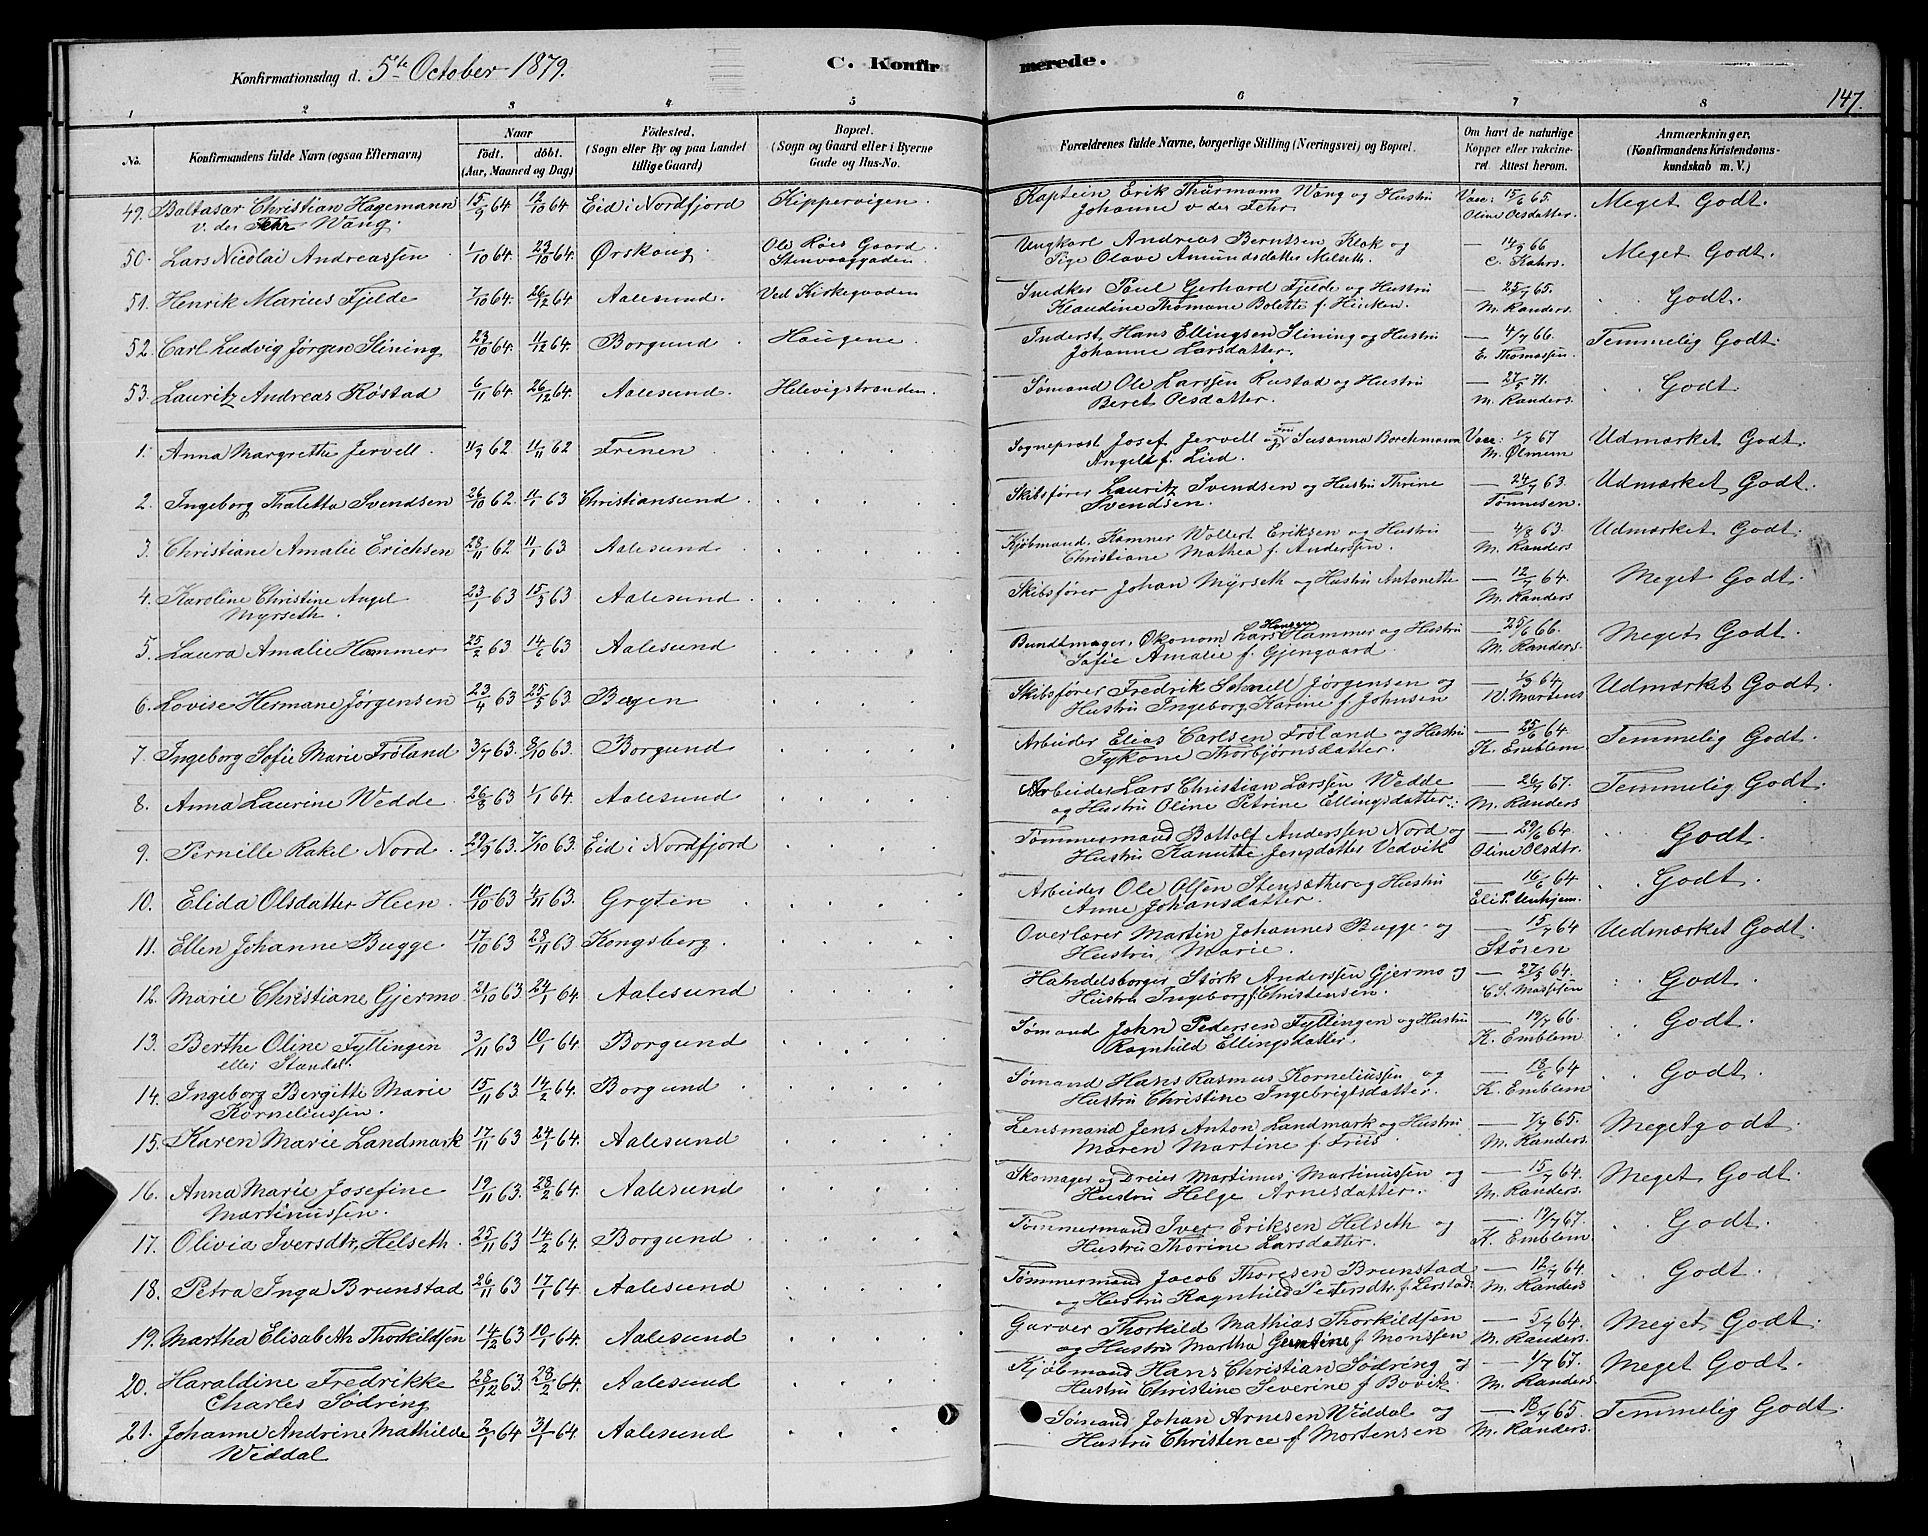 Konfirmationsdag d. 5te October 1879. C. Konfirmerede. 147.
1 2 3 4 5 6 7 8
No. Konfirmandens fulde Navn (ogsaa Efternavn) Naar født, døbt. (Aar, Maaned og Dag) Fødested. (Sogn eller By og paa Landet tillige Gaard) Bopæl. (Sogn og Gaard eller i Byerne Gade og Hus-No. Forældrenes fulde Navne, borgerlige Stilling (Næringsvei) og Bopæl. Om havt de naturlige Kopper eller vakcineret. Attest herom. Anmærkninger. (Konfirmandens Kristendomskundskab m. V.)
49. Baltasar Christian Hagemann 15/9 64 12/10 64 Eid i Nordfjord Kippervigen Kaptein Erik Thürmann Wang og Hustru Vacc: 15/6 65 Meget Godt.
v. der Fehr Wang. Johanne v der Fehr. Oline Olsdatter.
50. Lars Nicolai Andreassen 1/10 64. 23/10 64. Ørskoug. Ole Röes Gaard Ungkarl Andreas Berntsen Klok og — 14/9 66 Meget Godt.
Stenvaaggaden. Pige Olave Amundsdatter Melseth. C. Kahrs.
51. Henrik Marius Fjelde 7/10 64. 26/12 64 Aalesund. Ved Kirkegaaden Snedker Poul Gerhard Fjelde og Hustru — 25/7 65. Godt.
Klaudine Thomane Bolette f. Hinken. M. Randers.
52. Carl Ludvig Jørgen Slining 23/10 64. 11/12 64. Borgund Haugene. Inderst Hans Ellingsen Slining og Hustru — 4/7 66. Temmelig Godt.
Johanne Larsdatter. E. Thomassen.
53. Lauritz Andreas Röstad 6/11 64 26/12 64. Aalesund. Helevigstranden. Sømand Ole Larssen Rustad og Hustru — 27/5 71. Godt.
Beret Olsdatter. M. Randers.
1. Anna Margrethe Jervell. 4/9 62 11/11 62 Frenen Sogneprest Josef Jervell og Fru Susanna Borchmann Vacc: 1/7 67 Udmærket Godt.
Angell f. Lied. M. Ølmem
2. Ingeborg Thaletta Svendsen 26/10 62. 11/1 63 Christiansund. Skibsfører Lauritz Svendsen og Hustru Thrine — 24/7 63. Udmærket Godt.
Svendsen. Tønnesen.
3. Christiane Amalie Erichsen 28/11 62 11/1 63 Aalesund Kjøbmand, Kæmner Wollert Eriksen og Hustru — 4/8 63. Udmærket Godt.
Christiane Mathea f. Andersen. M. Randers
4. Karoline Christine Angel 23/1 63 15/3 63 Aalesund. Skibsfører Johan Myrseth og Hustru Antonette — 12/7 64. Meget Godt.
Myrseth. M. Randers
5. Laura Amalie Hammer 25/2 63 14/6 63 Aalesund Bundtmager, Økonom Lars Hansen Hammer og Hustru — 25/6 66. Meget Godt.
Sofie Amalie f. Gjengaard. M. Randers.
6. Lovise Hermane Jørgensen 23/4 63 25/5 63 Begen Skibsfører Fredrik Schnell Jørgensen og — 1/9 64 Udmærket Godt.
Hustru Ingeborg Karine f. Johnsen W. Martens
7. Ingeborg Sofie Marie Frøland 3/7 63. 8/10 63. Borgund Arbeider Elias Carlsen Frøland og Hustru — 25/6 64 Temmelig Godt.
Tykone Thorbjørnsdatter. K. Emblem
8. Anna Laurine Wedde. 26/8 63 1/1 64. Aalesund Arbeider Lars Christian Larssen Wedde — 26/7 67. Temmelig Godt.
og Hustru Oline Petrine Ellingsdatter. M. Randers
9. Pernille Rakel Nord. 29/9 63. 7/10 63. Eid i Nordfjord Tømmermand Battolf Anderssen Nord og — 29/6 64 Godt.
Hustru Kanutte Jensdatter Vedvik Oline Olsdtr.
10. Elida Olsdatter Heen 10/10 63 4/11 63. Gryten Arbeider Ole Olsen Stensæther og Hustru — 16/6 64 Godt.
Anne Johansdatter. Eli P. Unhjem.
11. Ellen Johanne Bugge 17/10 63 28/11 63 Kongsberg. Overlærer Martin Johannes Bugge og — 15/7 64 Uedmærket Godt.
Hustru Marie. Støren
12. Marie Christiane Gjermo. 21/10 63. 24/1 64. Aalesund Handelsborger Størk Anderssen Gjermo og — 27/5 64. Godt.
Hustru Ingeborg f. Christensen.
13. Berthe Oline Fyllingen 3/11 63 10/1 64 Borgund Sømand John Pedersen Fyllingen og Hustru — 19/7 66. Godt.
eller Standal. Ragnhild Ellingsdatter. K. Emblem.
14. Ingeborg Bergitte Marie 15/11 63. 14/2 64. Borgund Sømand Hans Rasmus Korneliussen og — 18/6 64 Godt.
Korneliussen. Hustru Christine Ingebrigtsdatter. K. Emblem
15. Karen Marie Landmark 17/11 63 24/1 64. Aalesund Lensmand Jens Anton Landmark og Hustru — 7/7 65. Megetgodt.
Maren Martine f. Friis. M. Randers.
16. Anna Marie Josefine 19/11 63. 28/2 64. Aalesund Skomager og Dreier Martinus Martinussen og — 15/7 64. Meget Godt.
Martinussen. Hustru Helge Arnesdatter. M. Randers.
17. Olivia Iversdtr. Helseth. 25/11 63 14/2 64. Borgund Tømmermand Iver Eriksen Helseth og — 19/7 67. Godt.
Hustru Thorine Larsdatter. K. Emblem.
18. Petra Inga Brunstad 26/11 63 17/1 64. Aalesund Tømmermand Jacob Thoresen Brunstad — 12/7 64. Godt.
og Hustru Ragnhild Petersdtr. f. Lerstad. M. Randers
19. Martha Elisabeth Thorkildsen 14/12 63 10/1 64. Aalesund Garver Thorkild Mathias Thorkildsen — 5/7 64. Meget Godt.
og Hustru Martha Gurtine f Monssen M. Randers.
20. Haraldine Fredrikke 28/12 63. 28/2 64. Aalesund Kjøbmand Hans Christian Sødring og — 1/7 67. Meget Godt.
Charles Sødring Hustru Christine Severine f Bovik. M. Randers
21. Johanne Andrine Mathilde 2/1 64 31/1 64. Aalesund Sømand Johan Arnesen Widdal og — 18/7 65. Temmelig Godt.
Widdal Hustru Christence f Mortensen M. Randers.